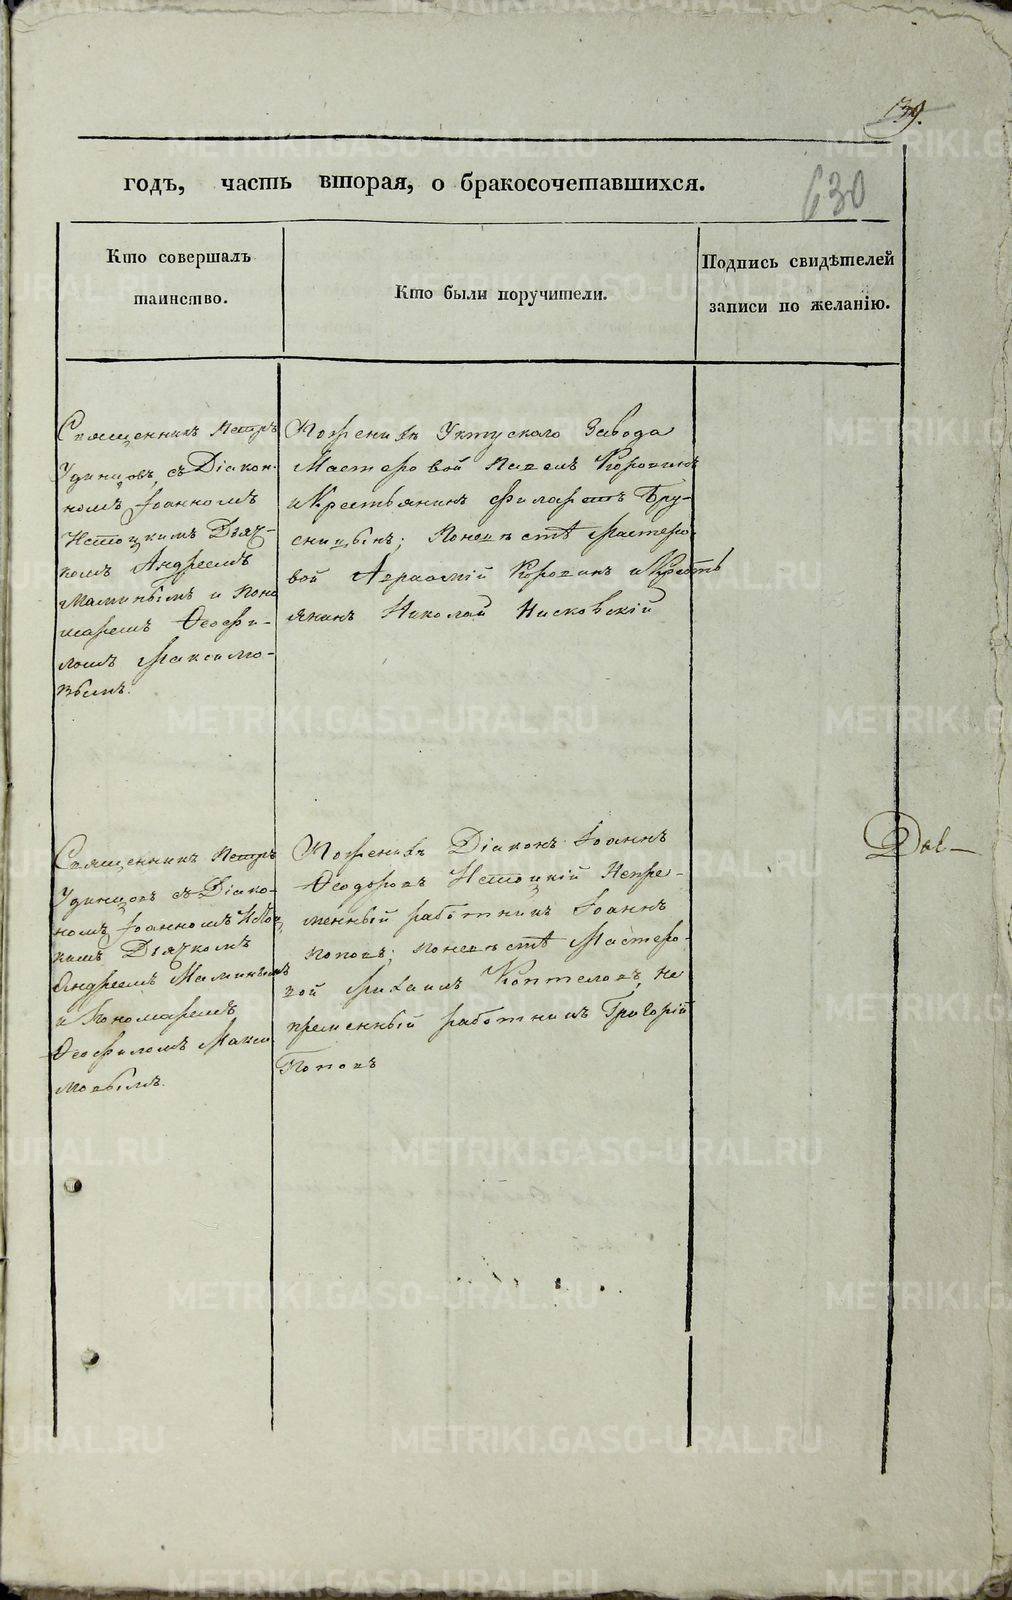 139.
630
годъ, часть вторая, о бракосочетавшихся.
Кто совершалъ
таинство.
Кто были поручители.
Подпись свидѣтелей
записи по желанію.
Священникъ Петръ
Удинцовъ, съ Діакон-
номъ Іоанномъ
Истоцкимъ Дьяч-
комъ Андреемъ
Маминымъ и Поно
маремъ Ѳеофи-
ломъ Максимо-
вымъ.
По женихѣ Уктускаго Завода
Мастеровой Павелъ Коровинъ
и Крестьянинъ Филаретъ Бру-
сницынъ; По невѣстѣ Мастеро-
вой Авраамій Коровинъ и Кресть
янинъ Николай Писковскій
Священникъ Петръ
Удинцовъ съ Діако-
номъ Іоанномъ Истоц
кимъ Дьячкомъ
Андреемъ Маминымъ
и Пономаремъ
Ѳеофиломъ Макси
мовымъ.
По женихѣ Діаконъ Іоаннъ
Ѳеодоровъ Истоцкій Непре-
менный работникъ Іоаннъ
Поповъ; по невѣстѣ Мастеро-
вой Михаилъ Коптеловъ, не
пременный работникъ Григорій
Поповъ
METRIKI.GASO-URAL.RU